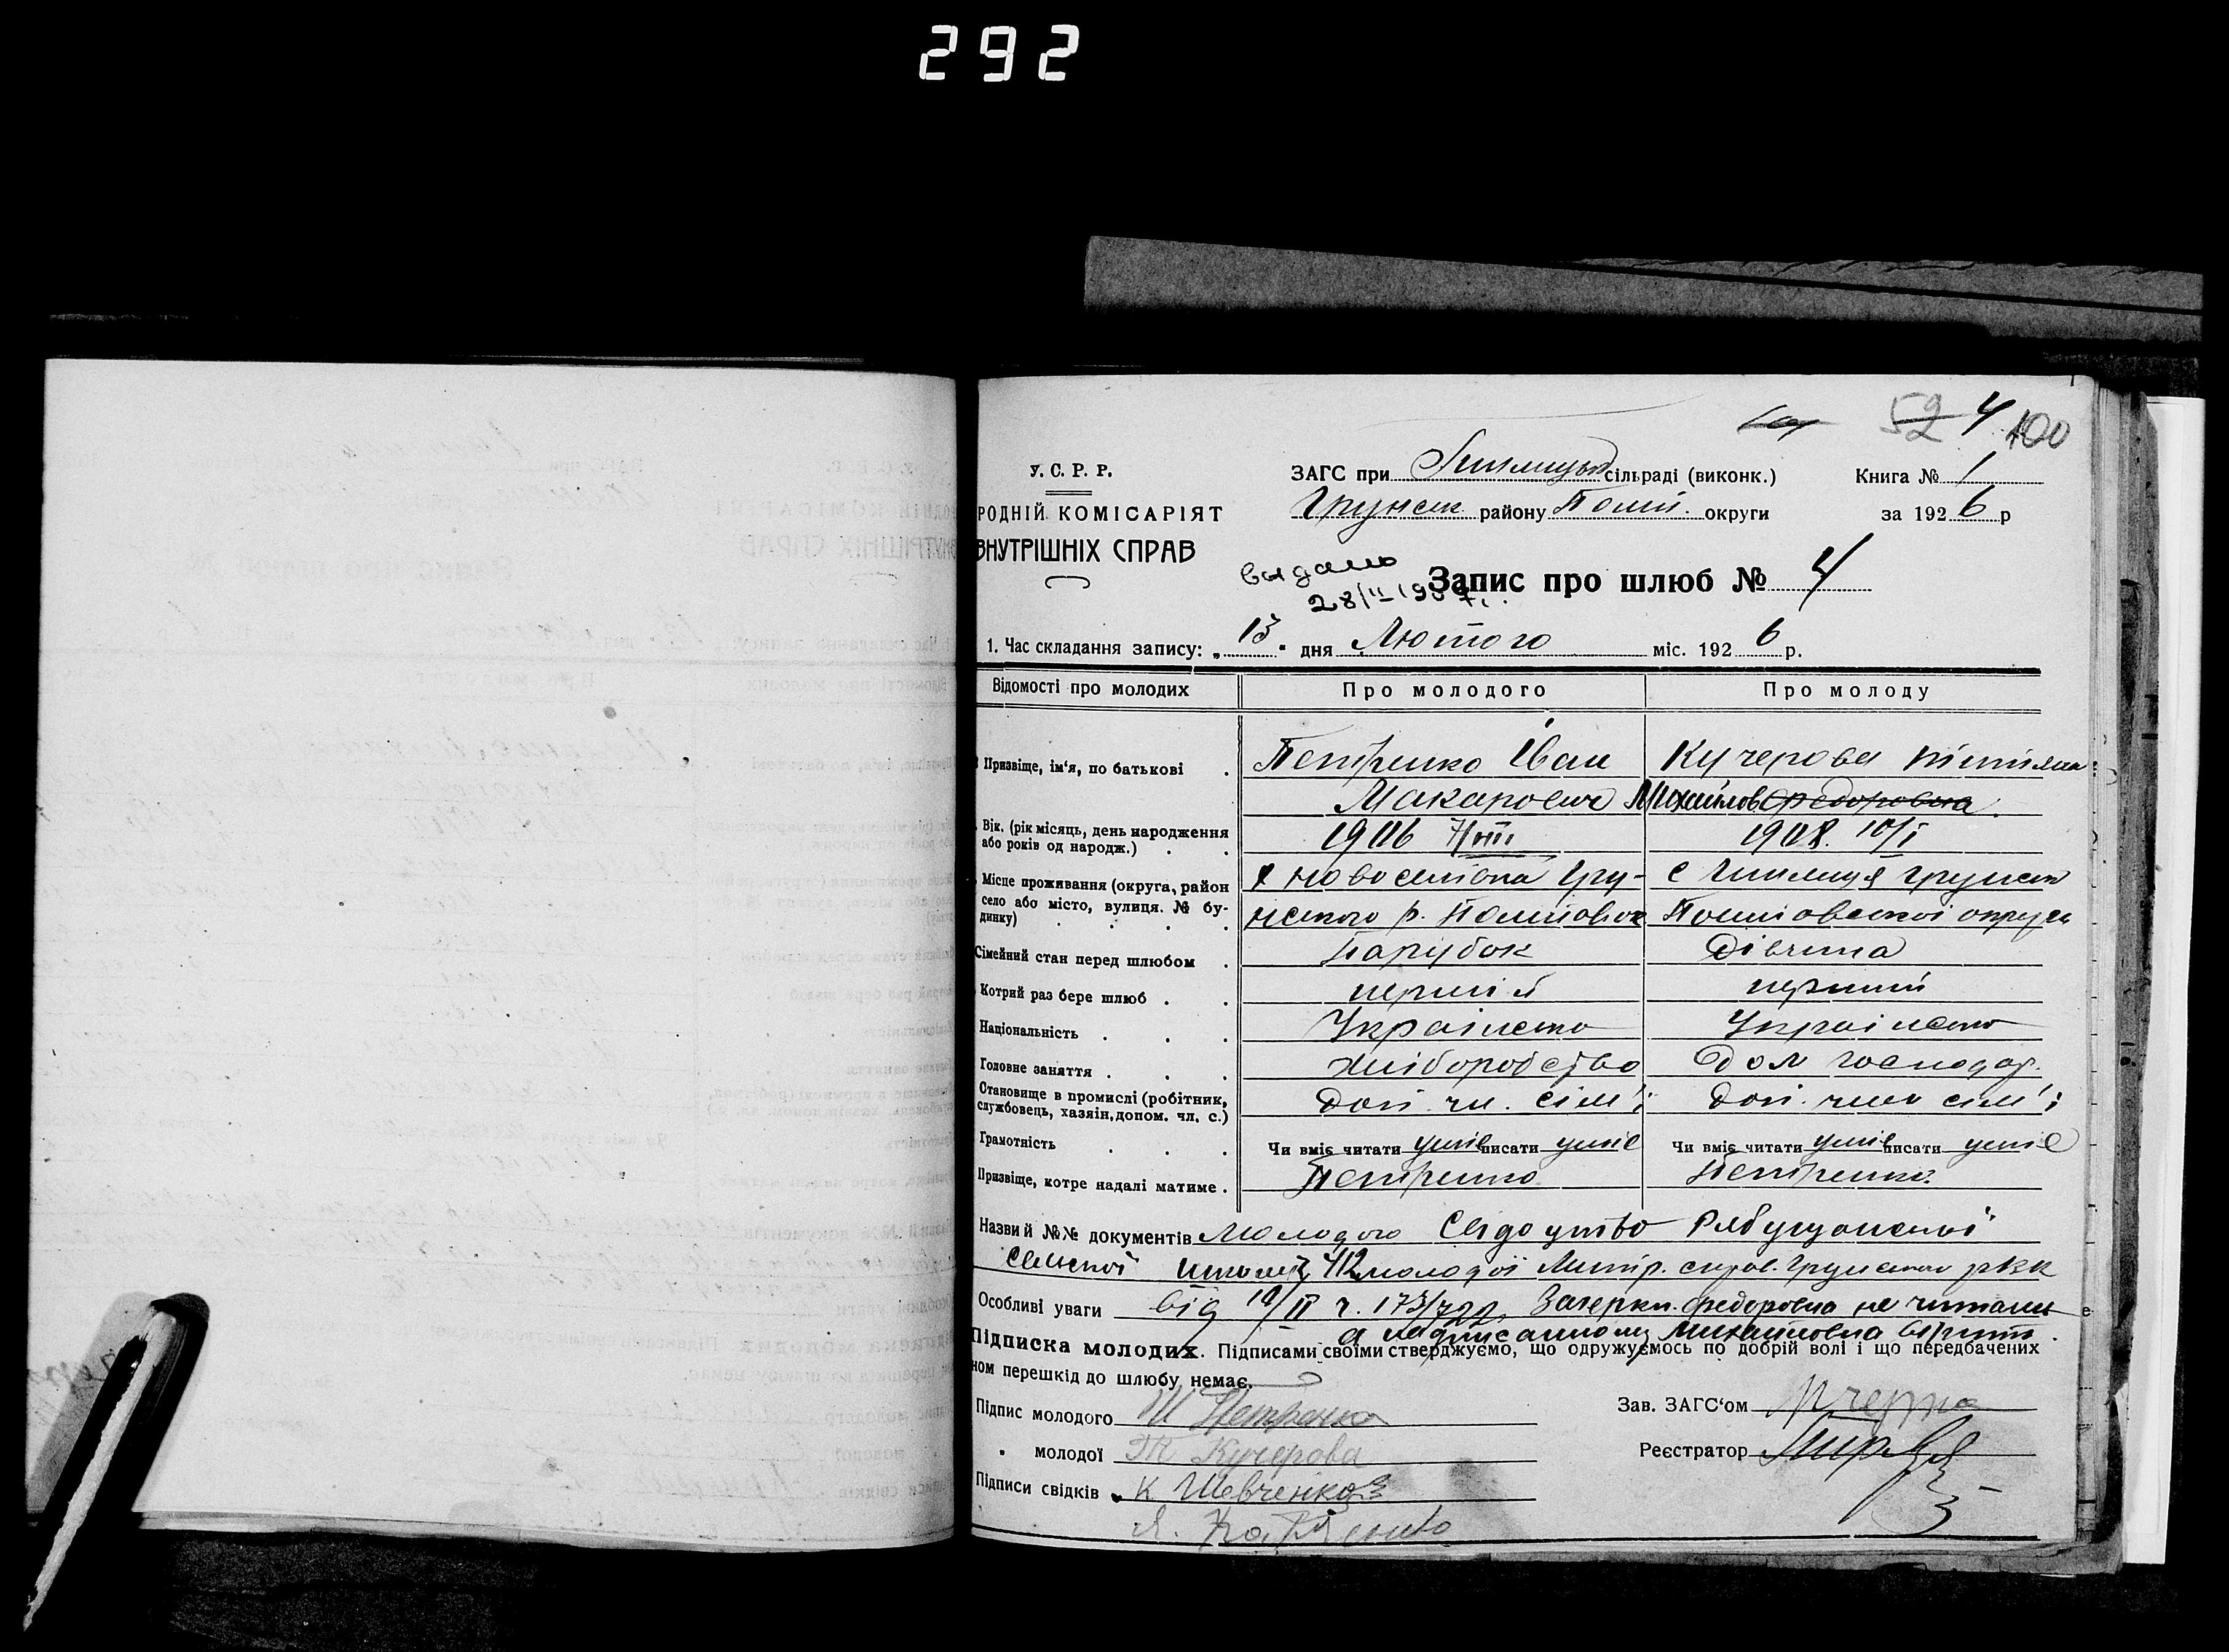 292
52 4 100
У. С. Р. Р.
РОДНІЙ КОМІСАРІЯТ
ВНУТРІШНІХ СПРАВ
ЗАГС при сільраді (виконк.) Книга № 1
Грунськ. району Полт. округи за 1926 р
выдано
Запис про шлюб № 4
28/II-19
1. Час складання запису: „13" дня Лютого міс. 1926 р.
Відомості про молодих Про молодого Про молоду
Призвіще, ім'я, по батькові Петренко Іван Кучерова Тітіяна
Макарович Михайлов Федоровна
Вік. (рік місяць, день народження 1906 1908. 10/I
або років од народж.)
Місце проживання (округа, район х Новоселівка Гру- с Грунськ
село або місто, вулиця. № бу- нського р. Полтавськ Полтавської округи
динку)
Сімейний стан перед шлюбом Парубок Дівчина
Котрий раз бере шлюб перший перший
Національність Українець Українка
Головне заняття Хліборобство Дом господар.
Становище в промислі (робітник, Доп. чл. сім'ї Доп. член сім'ї
службовець, хазяін, допом. чл. с.)
Грамотність Чи вміє читати уміє писати уміє Чи вміє читати уміє писати уміє
Призвіще, котре надалі матиме. Петренко Петренко
Назви й №№ документів Молодого Свідоцтво
сельської школи 412 молодої Метр. справ. Грунського РВК
Особливі уваги від 10/II ч. 173/722, Закерки. Федоровна не читать
а надписанному Михайловна вірить.
Підписка молодих. Підписами своїми стверджуємо, що одружуємось по добрій волі і що передбачених
ном перешкід до шлюбу немає.
Підпис молодого Петренко Зав. ЗАГС'ом
" молодої Т Кучерова Реєстратор
Підписи свідків К Шевченко